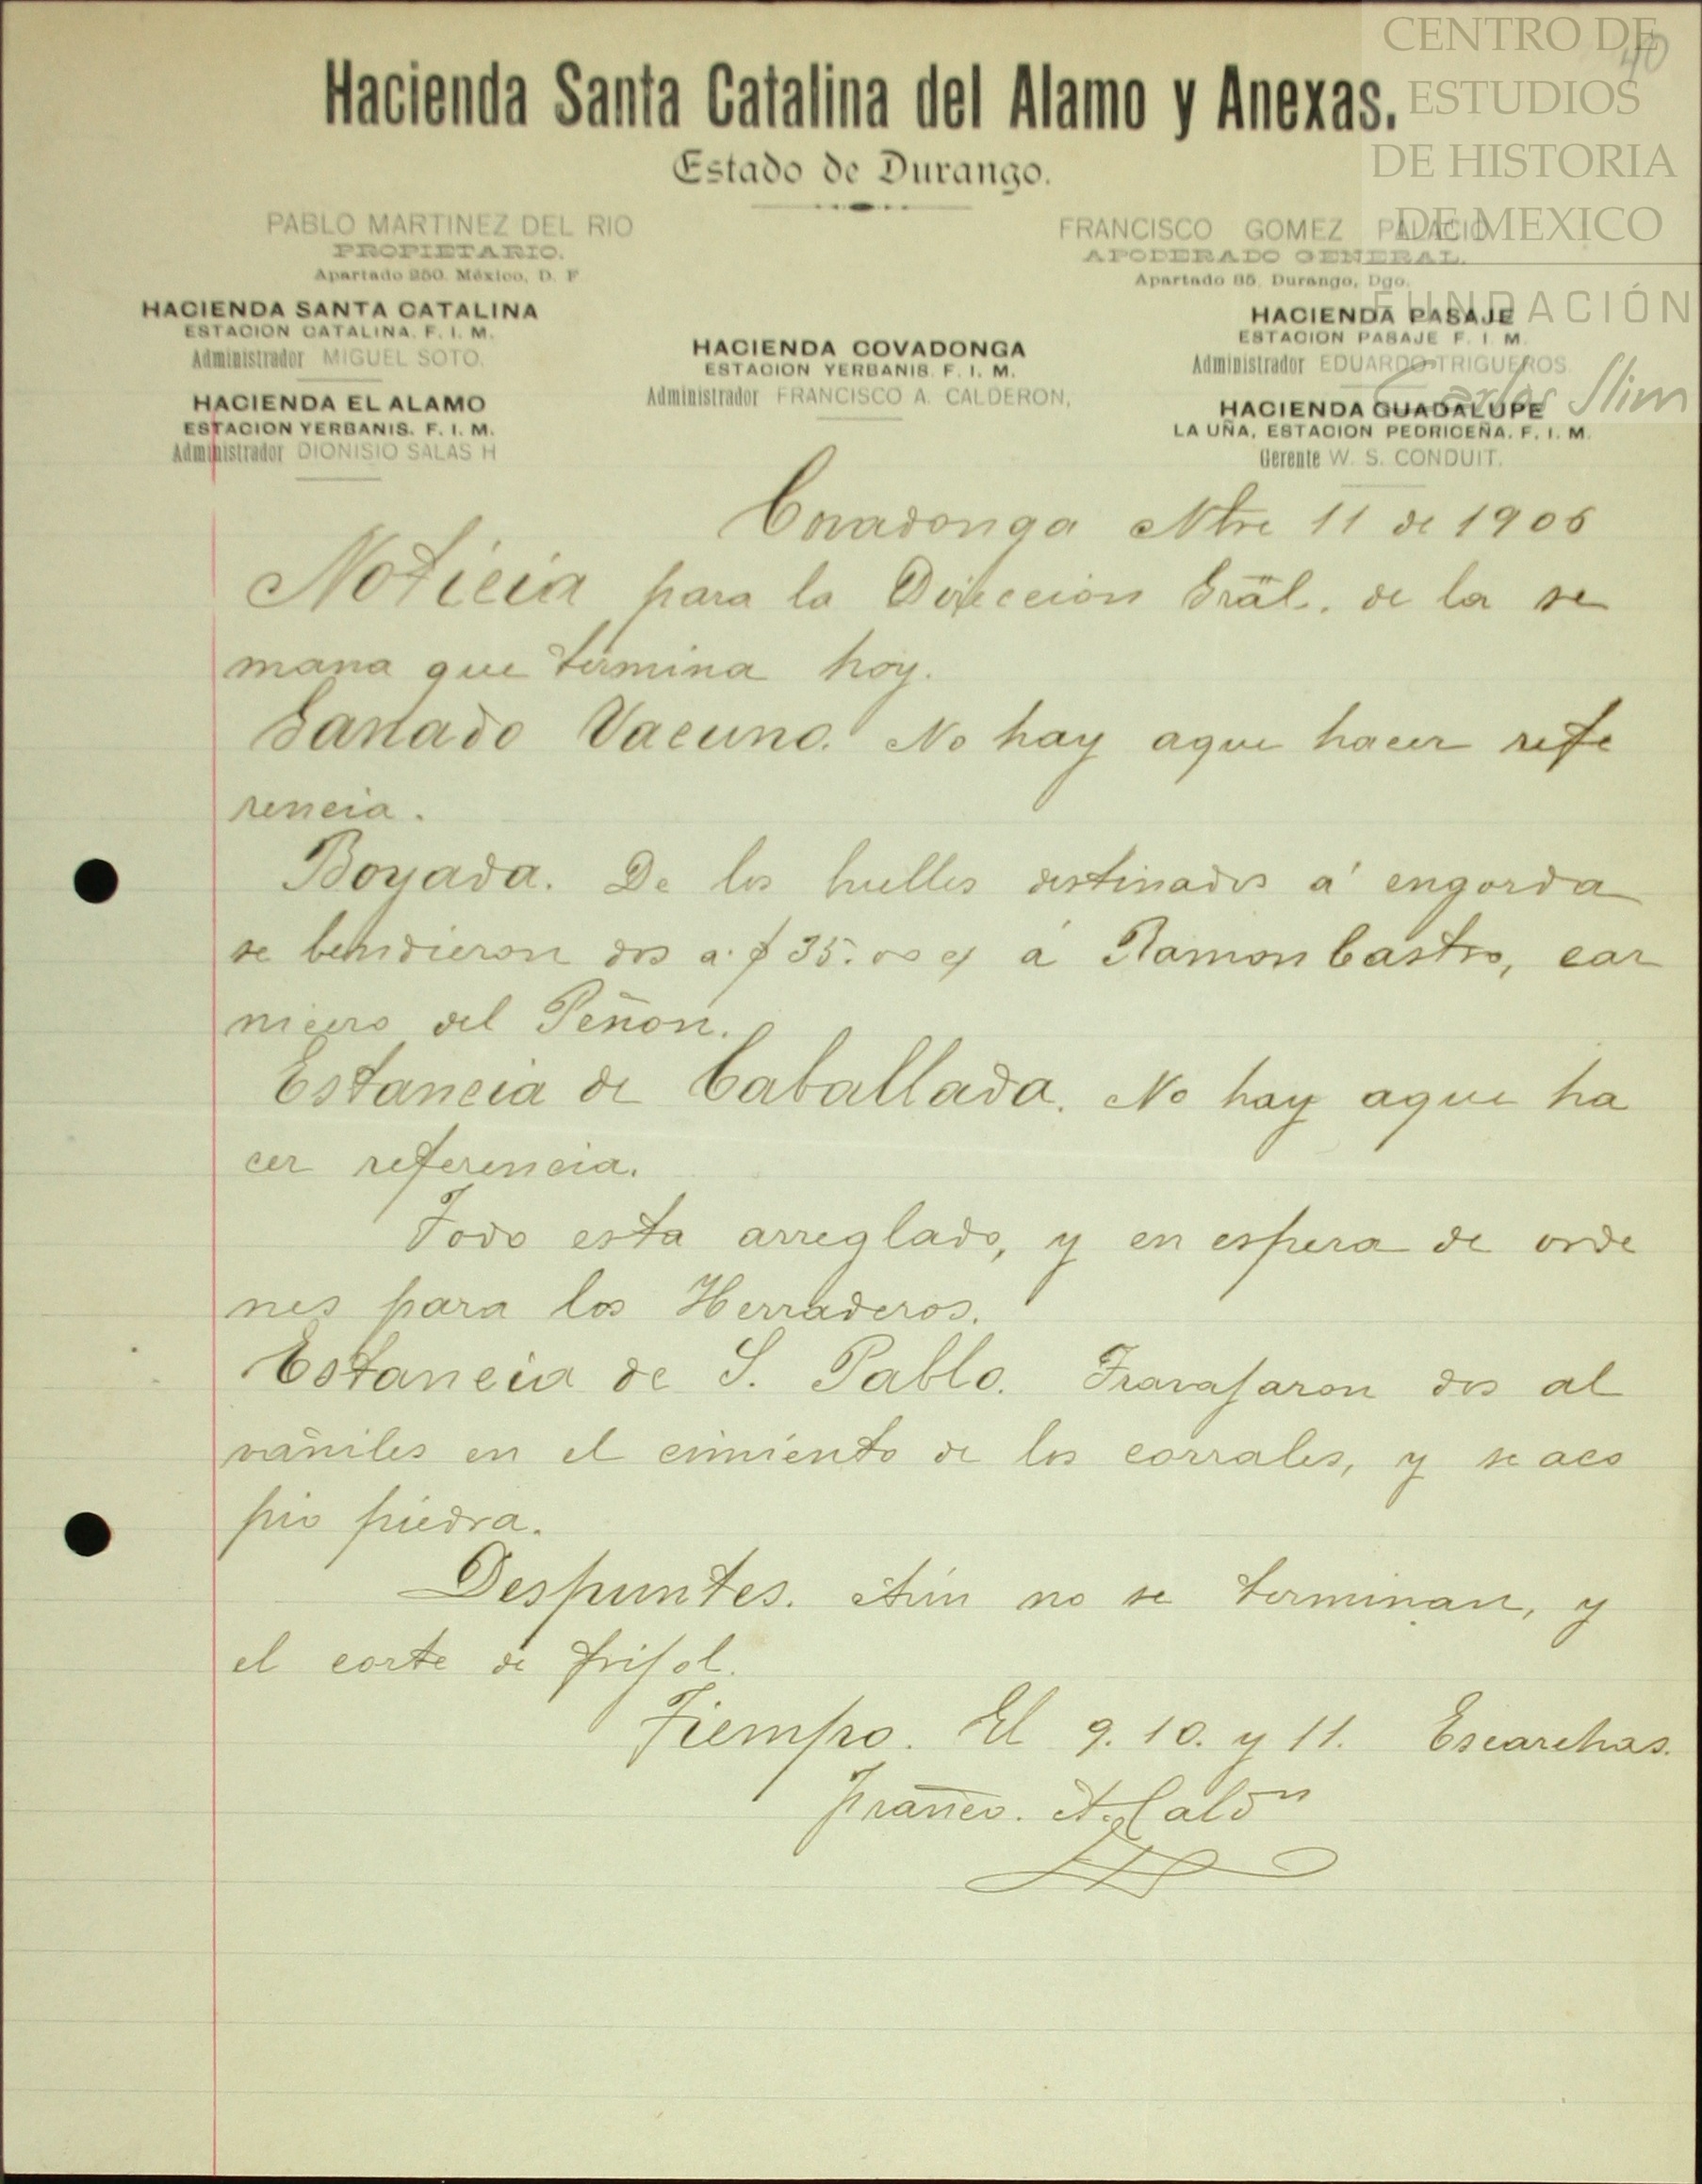 CENTRO DE
ESTUDIOS
DE HISTORIA
DE MEXICO
FUNDACIÓN
Carlos Slim
40
Hacienda Santa Catalina del Alamo y Anexas.
Estado de Durango.
PABLO MARTINEZ DEL RIO
PROPIETARIO.
Apartado 250. México, D. F.
FRANCISCO GOMEZ PALACIO
APODERADO GENERAL.
Apartado 85, Durango, Dgo.
HACIENDA SANTA CATALINA
ESTACION CATALINA. F. I. M.
Administrador MIGUEL SOTO.
HACIENDA EL ALAMO
ESTACION YERBANIS. F. I. M.
Administrador DIONISIO SALAS H
HACIENDA COVADONGA
ESTACION YERBANIS. F. I. M.
Administrador FRANCISCO A. CALDERON,
HACIENDA PASAJE
ESTACION PASAJE F. I. M.
Administrador EDUARDO TRIGUEROS
HACIENDA GUADALUPE
LA UÑA, ESTACION PEDRICEÑA. F. I. M.
Gerente W. S. CONDUIT.
Covadonga Nbre 11 de 1906
Noticia para la Dirección Gral. de la se
mana que termina hoy.
Ganado Vacuno. No hay aque hacer refe
rencia.
Boyada. De los huelles destinados á engorda
se bendieron dos a $35.00 c/ á Ramon Castro, car
nicero del Peñon.
Estancia de Caballada. No hay aque ha
cer referencia.
Todo esta arreglado, y en espera de orde
nes para los Herraderos.
Estancia de S. Pablo. Travajaron dos al
vañiles en el cimiento de los corrales, y se aco
pio piedra.
Despuntes. Aún no se terminan, y
el corte de frijol.
Tiempo. El 9. 10. y 11. Escarchas.
Franco. A. Caldn